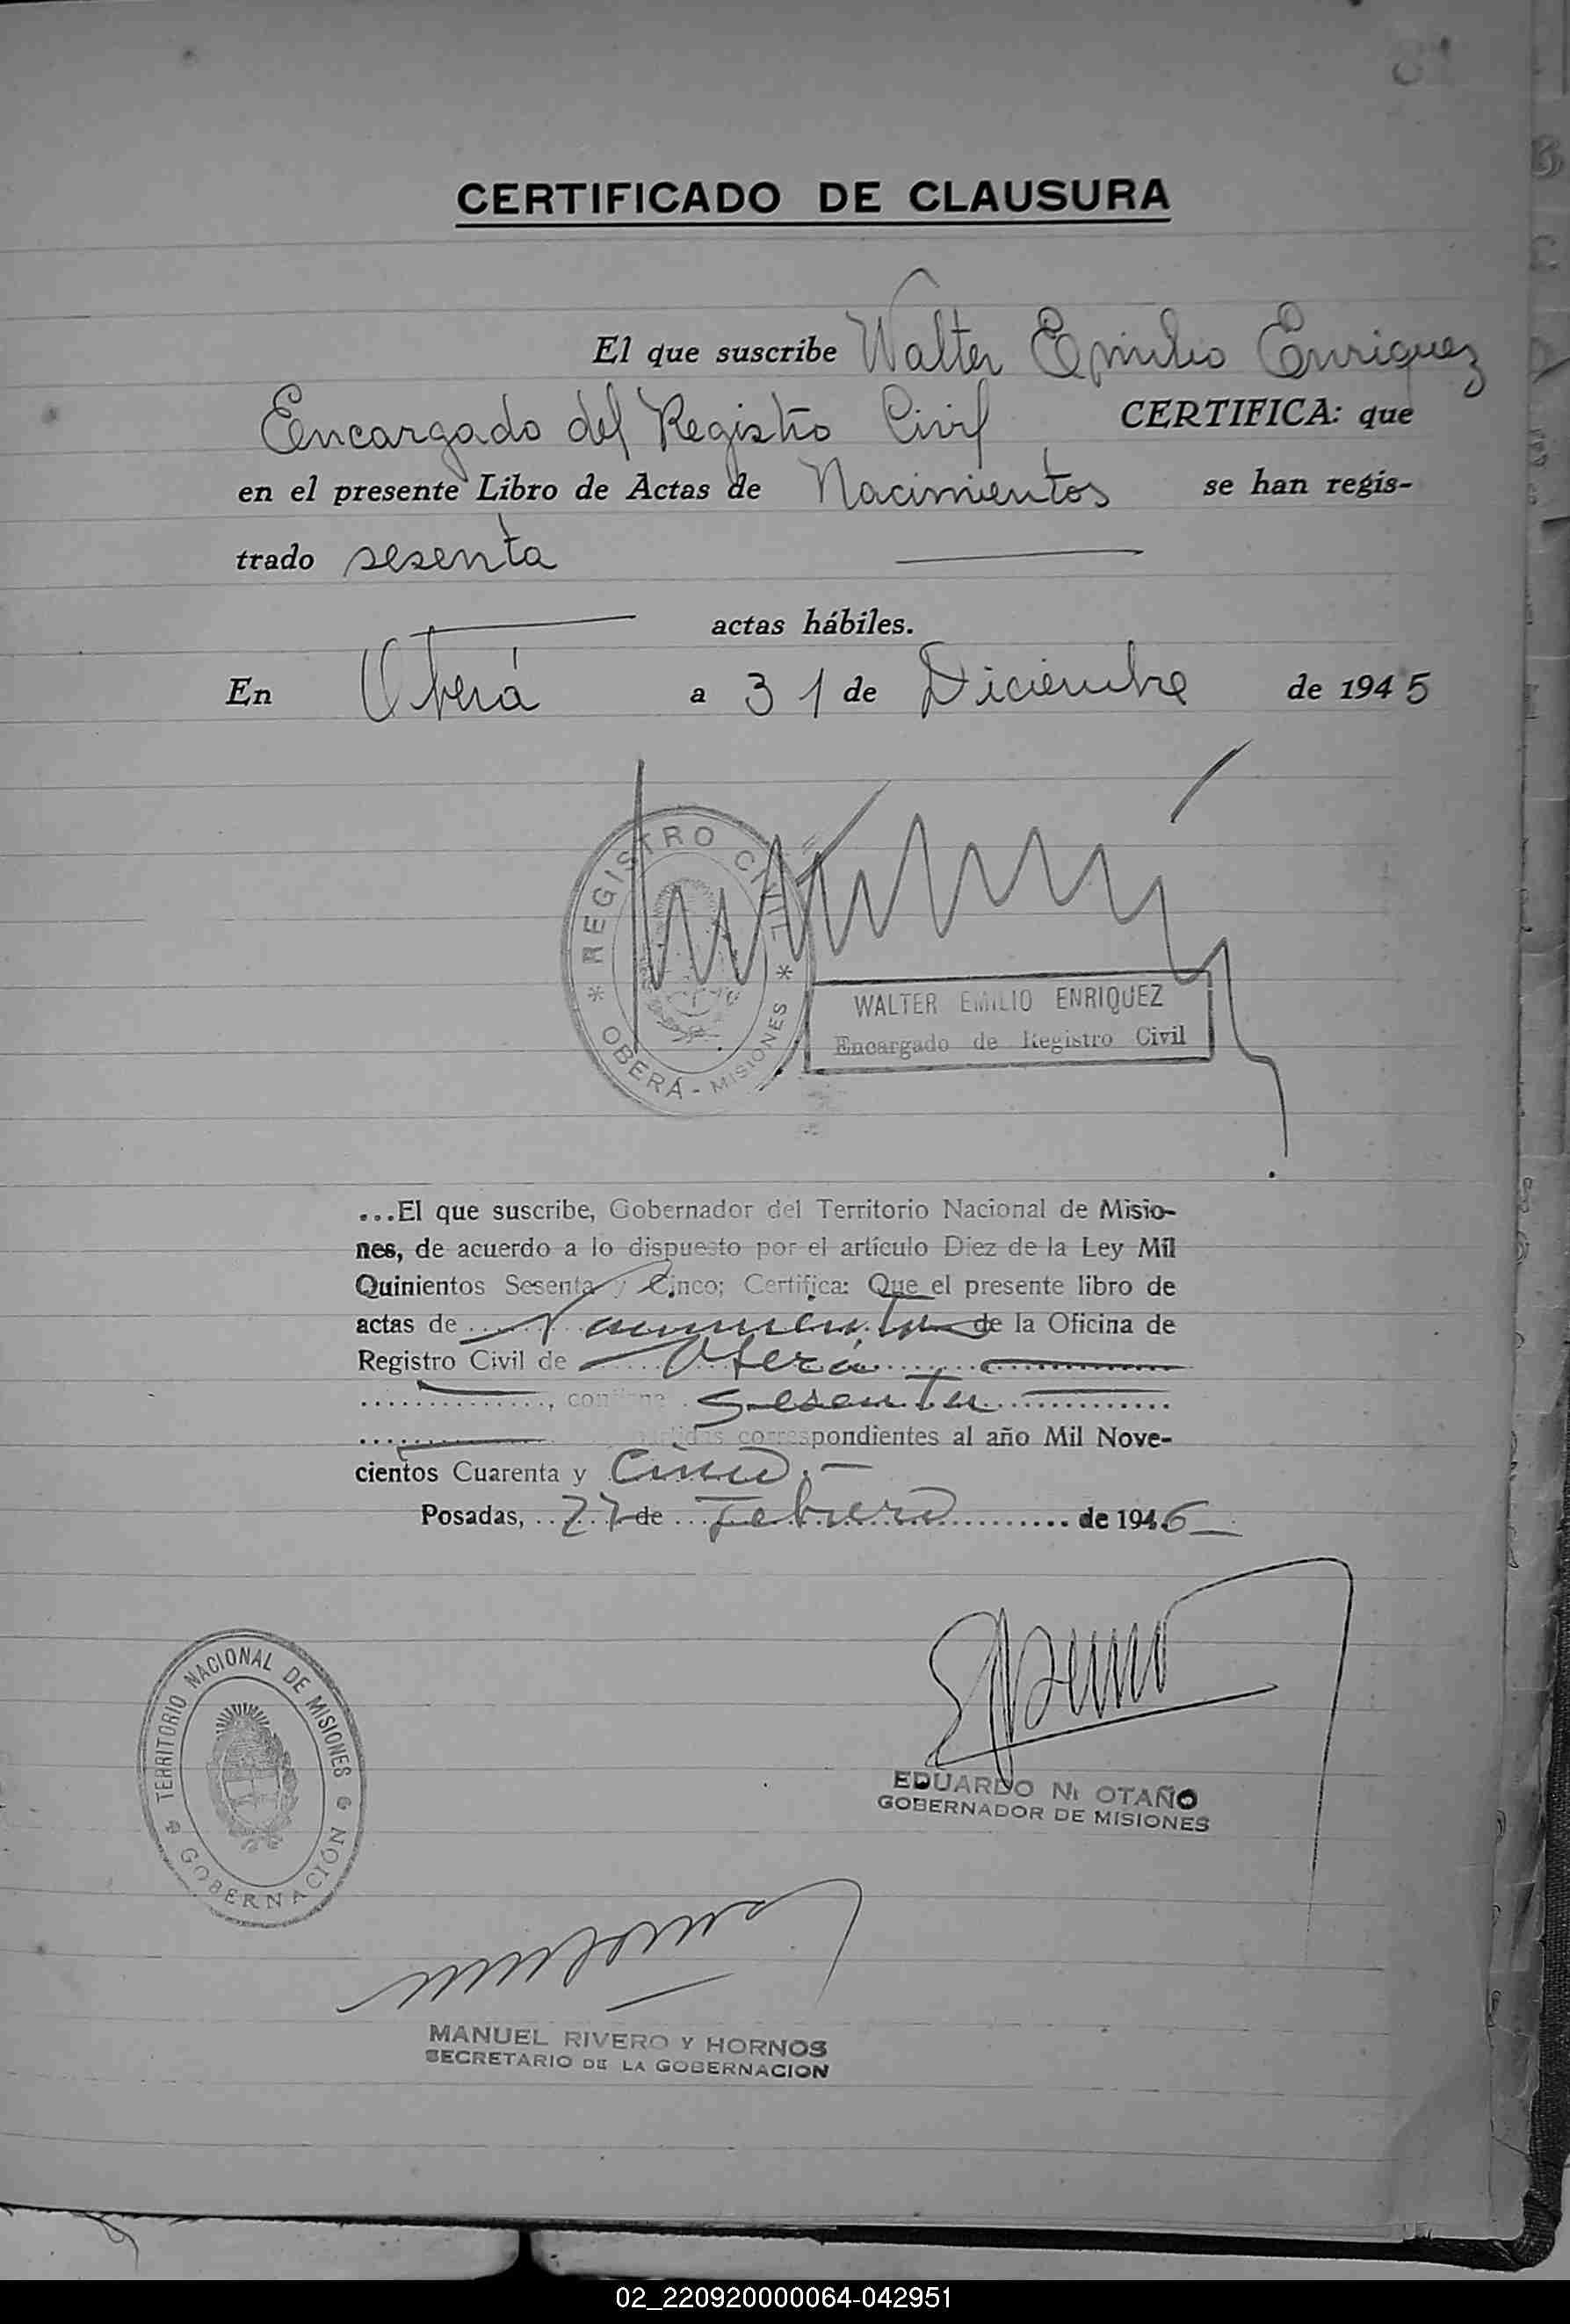 81
CERTIFICADO DE CLAUSURA
El que suscribe Walter Emilio Enriquez
Encargado del Registro Civil CERTIFICA: que
en el presente Libro de Actas de Nacimientos se han regis-
trado sesenta
actas hábiles.
En Oberá a 31 de Diciembre de 1945
* REGISTRO CIVIL *
OBERÁ - MISIONES
WALTER EMILIO ENRIQUEZ
Encargado de Registro Civil
...El que suscribe, Gobernador del Territorio Nacional de Misio-
nes, de acuerdo a lo dispuesto por el artículo Diez de la Ley Mil
Quinientos Sesenta y Cinco; Certifica: Que el presente libro de
actas de Nacimientos de la Oficina de
Registro Civil de Oberá
, contiene sesenta
partidas correspondientes al año Mil Nove-
cientos Cuarenta y Cinco.-
Posadas, 27 de Febrero de 1946
TERRITORIO NACIONAL DE MISIONES
GOBERNACIÓN
EDUARDO N. OTAÑO
GOBERNADOR DE MISIONES
MANUEL RIVERO Y HORNOS
SECRETARIO DE LA GOBERNACION
02_220920000064-042951